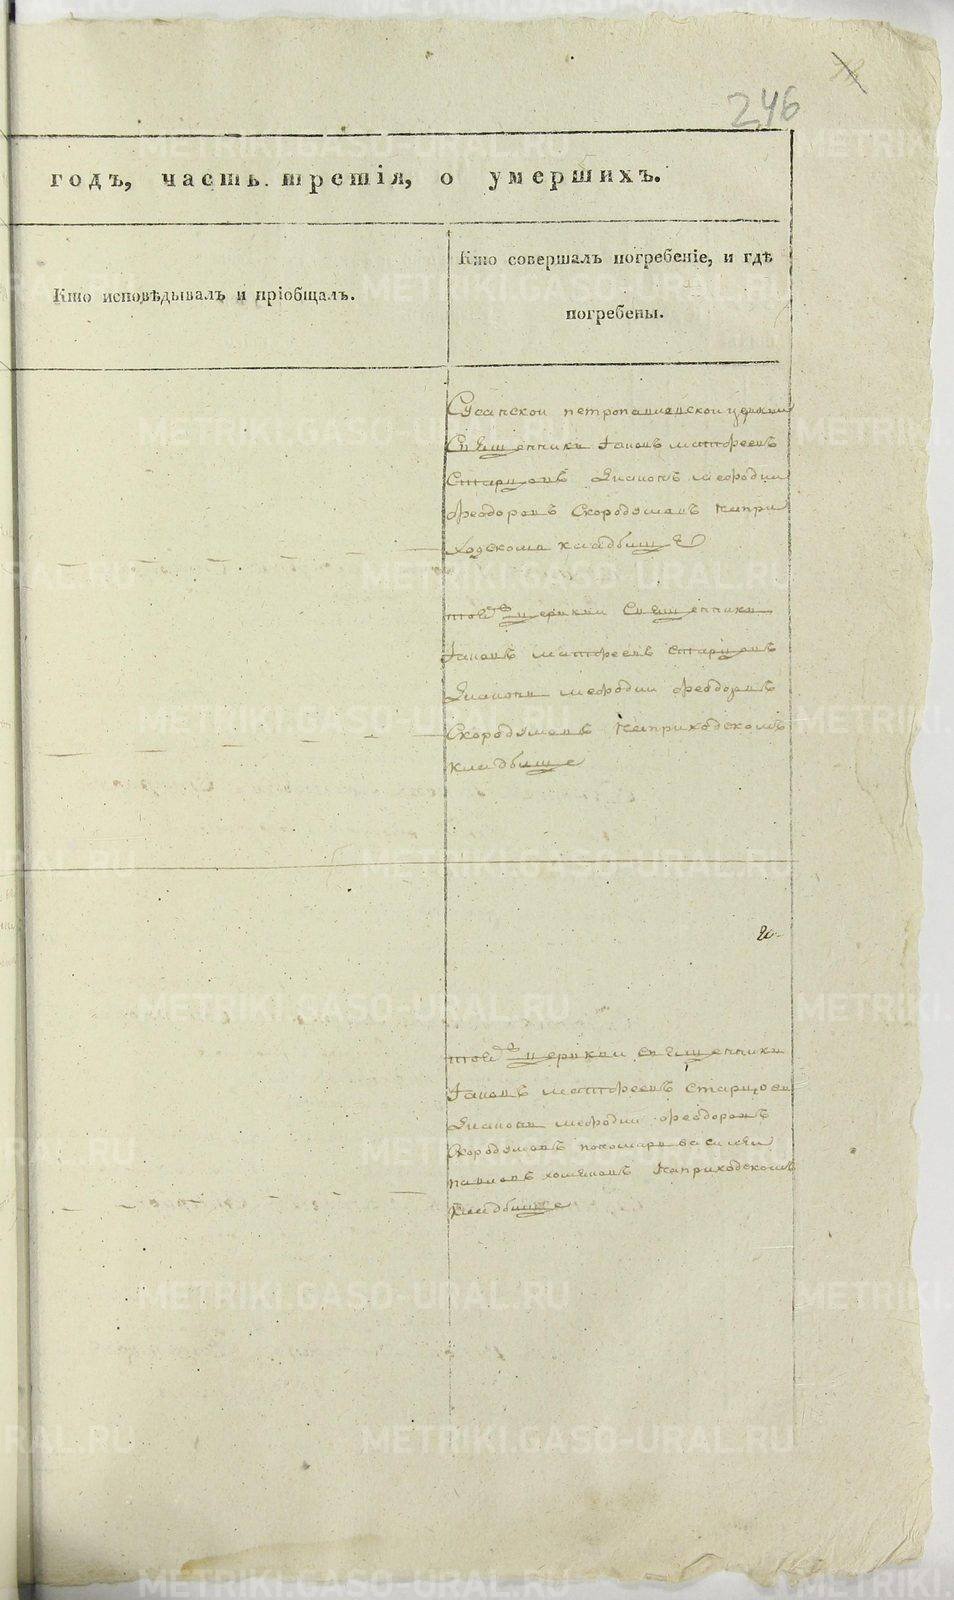 246
годъ, часть третія, о умершихъ.
Кто исповѣдывалъ и пріобщалъ.
Кто совершалъ погребеніе, и гдѣ
погребены.
Сусанской петропавловской церкви
Священникъ Іаковъ матфеевъ
Старцовъ Діаконъ мефодии
феодоровъ Скородумовъ напри
ходскомъ кладбище
тойже церкви Священникъ
Іаковъ матфеевъ старцовъ
Діаконъ мефодии феодоровъ
Скородумовъ наприходскомъ
кладбище
тойже церкви священникъ
Іаковъ матфеевъ старцовъ
Діаконъ мефодии феодоровъ
Скородумовъ пономарь василеи
павловъ наприходскомъ
кладбище
METRIKI.GASO-URAL.RU